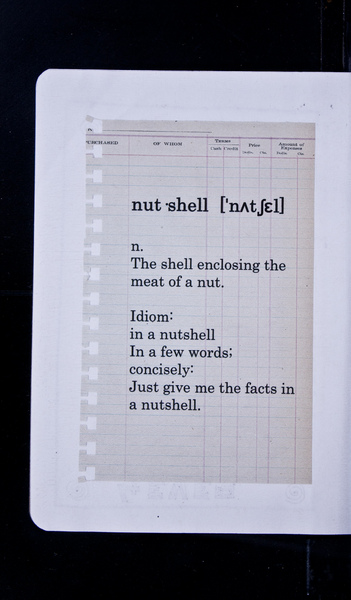 PURCHASED OF WHOM Terms Price Amount of Expenses
Cash Credit Dolls. Cts. Dolls. Cts.
nut·shell ['nʌtʃɛl]
n.
The shell enclosing the
meat of a nut.
Idiom:
in a nutshell
In a few words;
concisely:
Just give me the facts in
a nutshell.